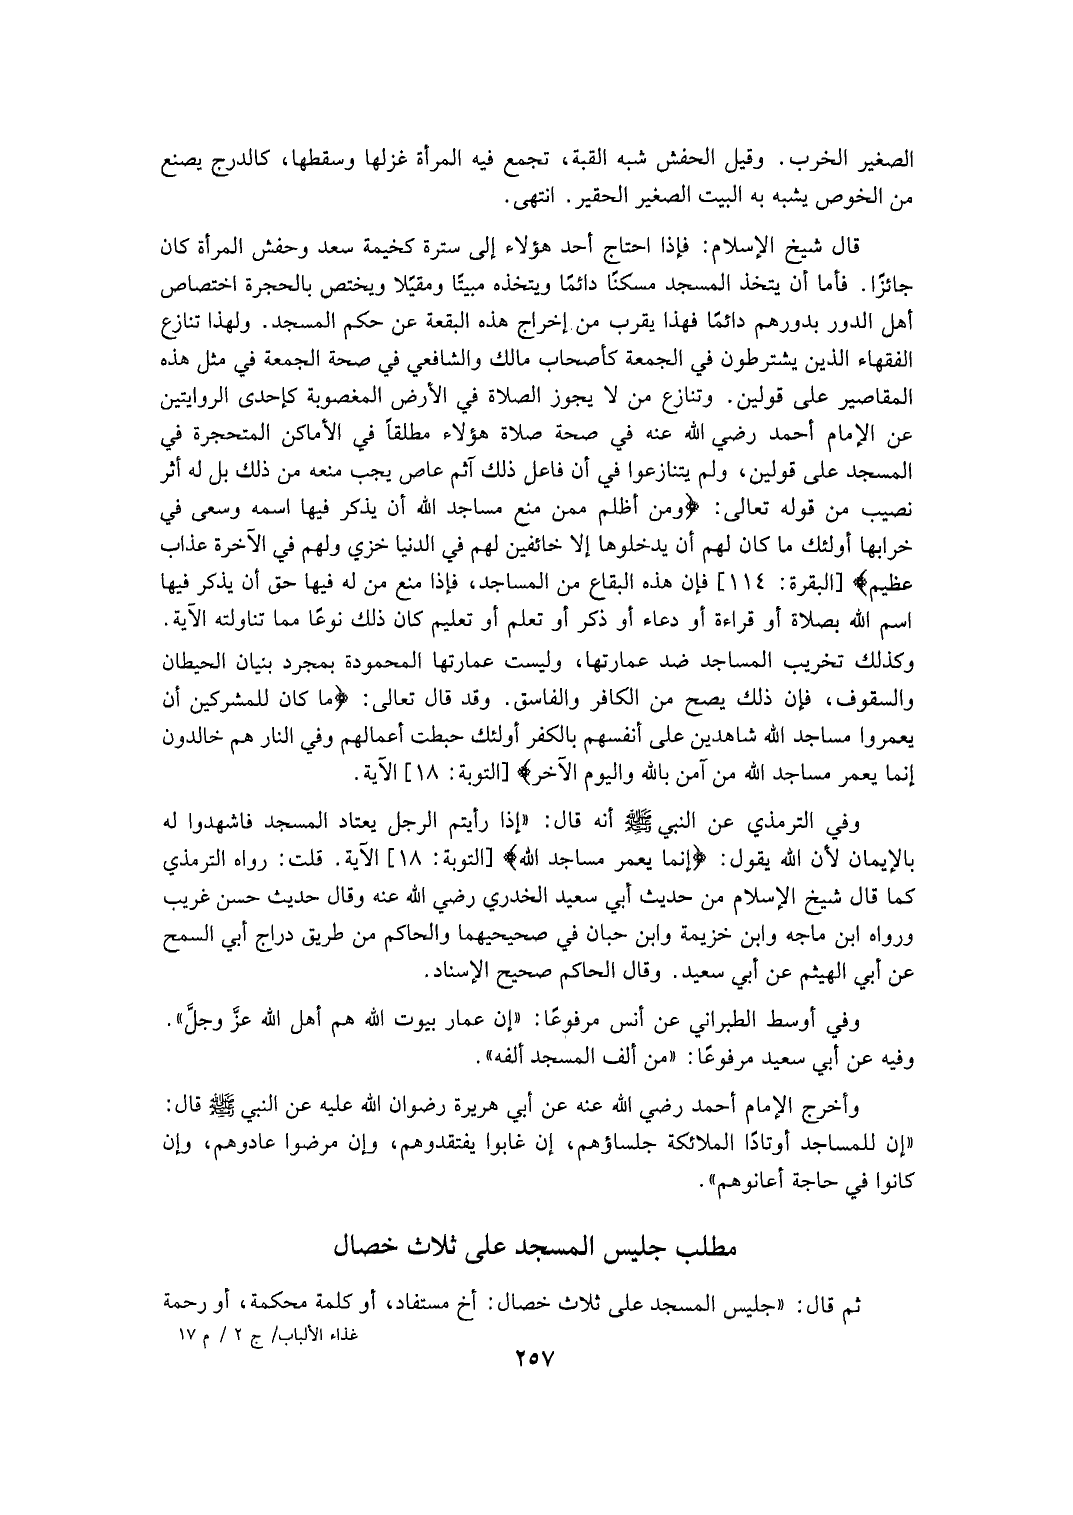 الصغير الخرب. وقيل الحفش شبه القبة، تجمع فيه المرأة غزلها وسقطها، كالدرج يصنع
من الخوص يشبه به البيت الصغير الحقير. انتهى.
قال شيخ الإسلام: فإذا احتاج أحد هؤلاء إلى سترة كخيمة سعد وحفش المرأة كان
جائزًا. فأما أن يتخذ المسجد مسكنًا دائمًا ويتخذه مبيتًا ومقيّلا ويختص بالحجرة اختصاص
أهل الدور بدورهم دائمًا فهذا يقرب من إخراج هذه البقعة عن حكم المسجد. ولهذا تنازع
الفقهاء الذين يشترطون في الجمعة كأصحاب مالك والشافعي في صحة الجمعة في مثل هذه
المقاصير على قولين. وتنازع من لا يجوز الصلاة في الأرض المغصوبة كإحدى الروايتين
عن الإمام أحمد رضي الله عنه في صحة صلاة هؤلاء مطلقاً في الأماكن المتحجرة في
المسجد على قولين، ولم يتنازعوا في أن فاعل ذلك آثم عاص يجب منعه من ذلك بل له أثر
نصيب من قوله تعالى: ﴿ومن أظلم ممن منع مساجد الله أن يذكر فيها اسمه وسعى في
خرابها أولئك ما كان لهم أن يدخلوها إلا خائفين لهم في الدنيا خزي ولهم في الآخرة عذاب
عظيم﴾ [البقرة: ١١٤] فإن هذه البقاع من المساجد، فإذا منع من له فيها حق أن يذكر فيها
اسم الله بصلاة أو قراءة أو دعاء أو ذكر أو تعلم أو تعليم كان ذلك نوعًا مما تناولته الآية.
وكذلك تخريب المساجد ضد عمارتها، وليست عمارتها المحمودة بمجرد بنيان الحيطان
والسقوف، فإن ذلك يصح من الكافر والفاسق. وقد قال تعالى: ﴿ما كان للمشركين أن
يعمروا مساجد الله شاهدين على أنفسهم بالكفر أولئك حبطت أعمالهم وفي النار هم خالدون
إنما يعمر مساجد الله من آمن بالله واليوم الآخر﴾ [التوبة: ١٨] الآية.
وفي الترمذي عن النبي ﷺ أنه قال: «إذا رأيتم الرجل يعتاد المسجد فاشهدوا له
بالإيمان لأن الله يقول: ﴿إنما يعمر مساجد الله﴾ [التوبة: ١٨] الآية. قلت: رواه الترمذي
كما قال شيخ الإسلام من حديث أبي سعيد الخدري رضي الله عنه وقال حديث حسن غريب
ورواه ابن ماجه وابن خزيمة وابن حبان في صحيحيهما والحاكم من طريق دراج أبي السمح
عن أبي الهيثم عن أبي سعيد. وقال الحاكم صحيح الإسناد.
وفي أوسط الطبراني عن أنس مرفوعًا: «إن عمار بيوت الله هم أهل الله عزَّ وجلَّ».
وفيه عن أبي سعيد مرفوعًا: «من ألف المسجد ألفه».
وأخرج الإمام أحمد رضي الله عنه عن أبي هريرة رضوان الله عليه عن النبي ﷺ قال:
«إن للمساجد أوتادًا الملائكة جلساؤهم، إن غابوا يفتقدوهم، وإن مرضوا عادوهم، وإن
كانوا في حاجة أعانوهم».
مطلب جليس المسجد على ثلاث خصال
ثم قال: «جليس المسجد على ثلاث خصال: أخ مستفاد، أو كلمة محكمة، أو رحمة
غذاء الألباب/ ج ٢ / م ١٧
٢٥٧